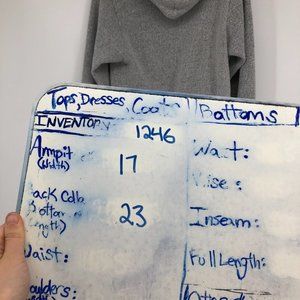 Tops, Dresses, Coats
Bottoms
INVENTORY
1246
Armpit
(Width)
17
Back Colla
Bottom
ength)
23
Waist:
oulders:
Wa t:
Rise:
Inseam:
Full Length: